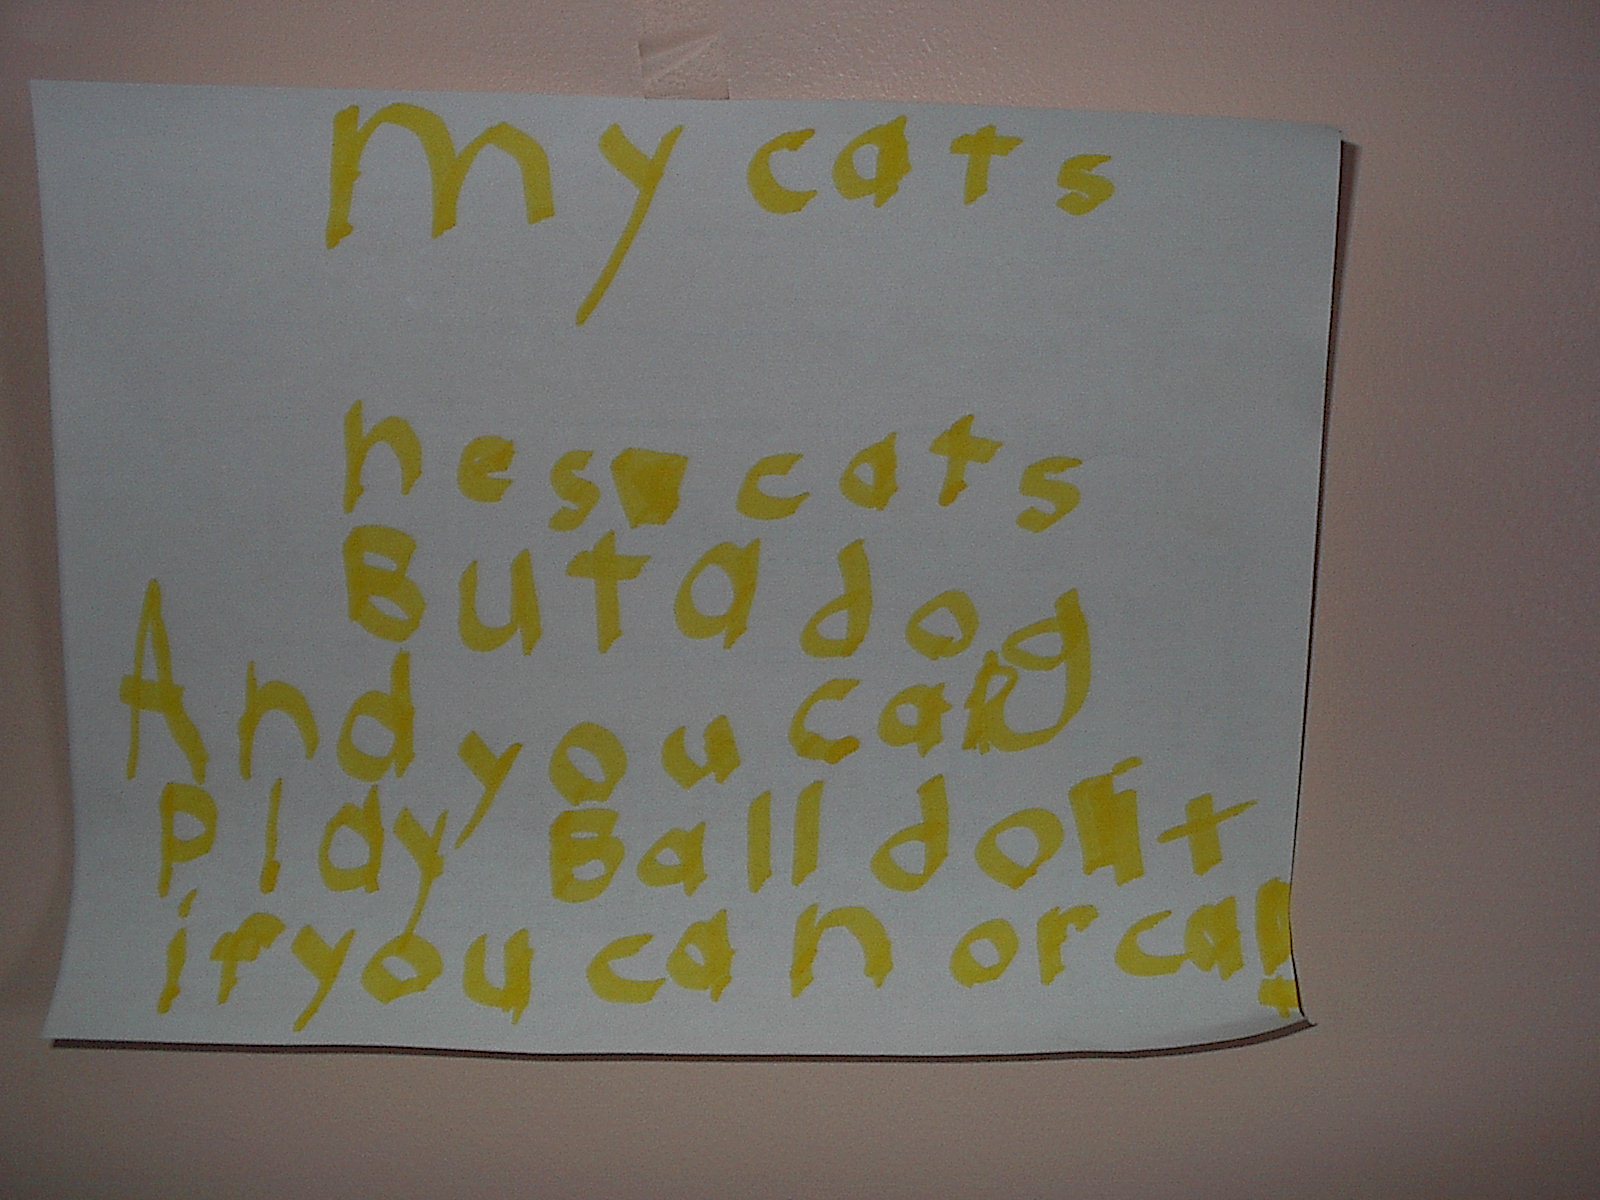 My cats
hes cats
But a dog
And you can
Play Ball dont
if you can or ca!